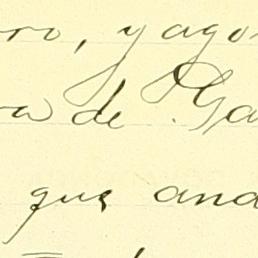 ro, y ago
a de Ga
que and